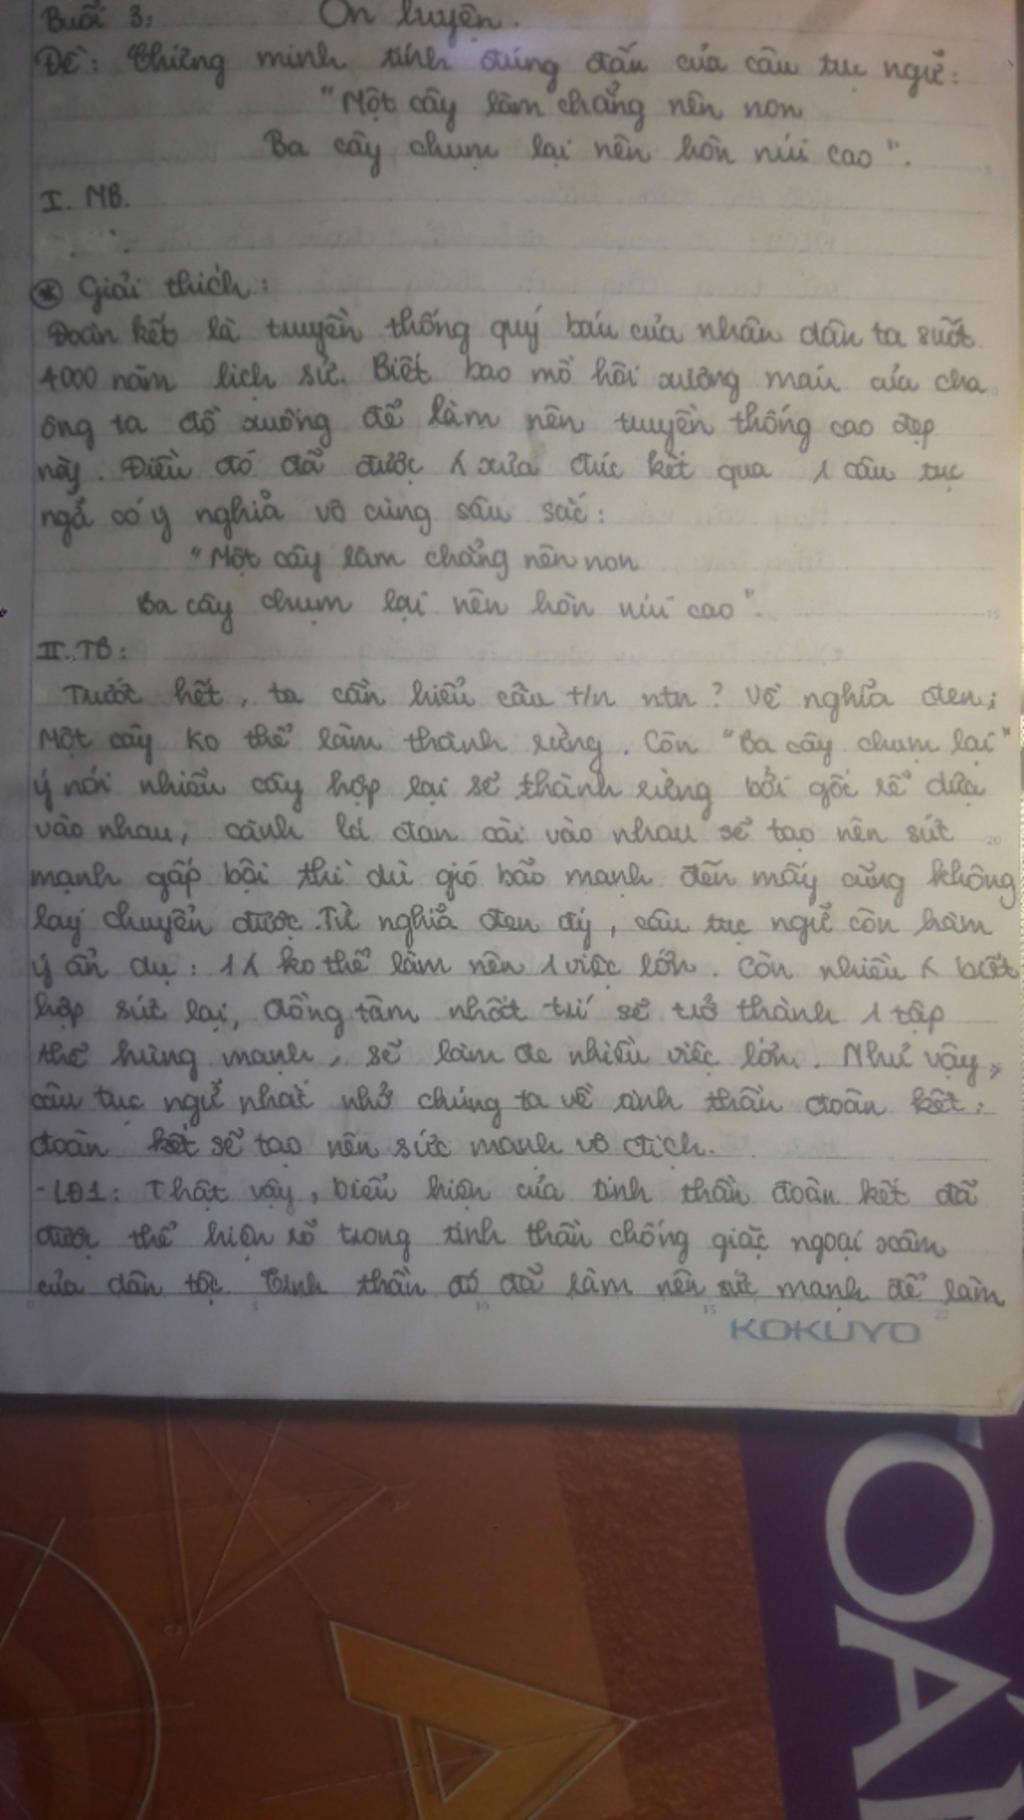 Buổi 3: Ôn luyện.
Đề: Chứng minh tính đúng đắn của câu tục ngữ:
"Một cây làm chẳng nên non
Ba cây chụm lại nên hòn núi cao".
I. MB.
* Giải thích:
Đoàn kết là truyền thống quý báu của nhân dân ta suốt
4000 năm lịch sử. Biết bao mồ hôi xương máu của cha
ông ta đổ xuống để làm nên truyền thống cao đẹp
này. Điều đó đã được ʎ xưa đúc kết qua 1 câu tục
ngữ có ý nghĩa vô cùng sâu sắc:
"Một cây làm chẳng nên non
Ba cây chụm lại nên hòn núi cao".
II. TB:
Trước hết, ta cần hiểu câu t/n ntn? Về nghĩa đen;
Một cây ko thể làm thành rừng. Còn "Ba cây chụm lại"
ý nói nhiều cây hợp lại sẽ thành rừng bởi gốc rễ dựa
vào nhau, cành lá đan cài vào nhau sẽ tạo nên sức
mạnh gấp bội thì dù gió bão mạnh đến mấy cũng không
lay chuyển được. Từ nghĩa đen ấy, câu tục ngữ còn hàm
ý ẩn dụ: 1 ʎ ko thể làm nên 1 việc lớn. Còn nhiều ʎ biết
hợp sức lại, đồng tâm nhất trí sẽ trở thành 1 tập
thể hùng mạnh, sẽ làm đc nhiều việc lớn. Như vậy,
câu tục ngữ nhắc nhở chúng ta về tinh thần đoàn kết:
đoàn kết sẽ tạo nên sức mạnh vô địch.
- LĐ1: Thật vậy, biểu hiện của tinh thần đoàn kết đã
được thể hiện rõ trong tinh thần chống giặc ngoại xâm
của dân tộc. Tinh thần đó đã làm nên sức mạnh để làm
KOKUYO
TOÁN